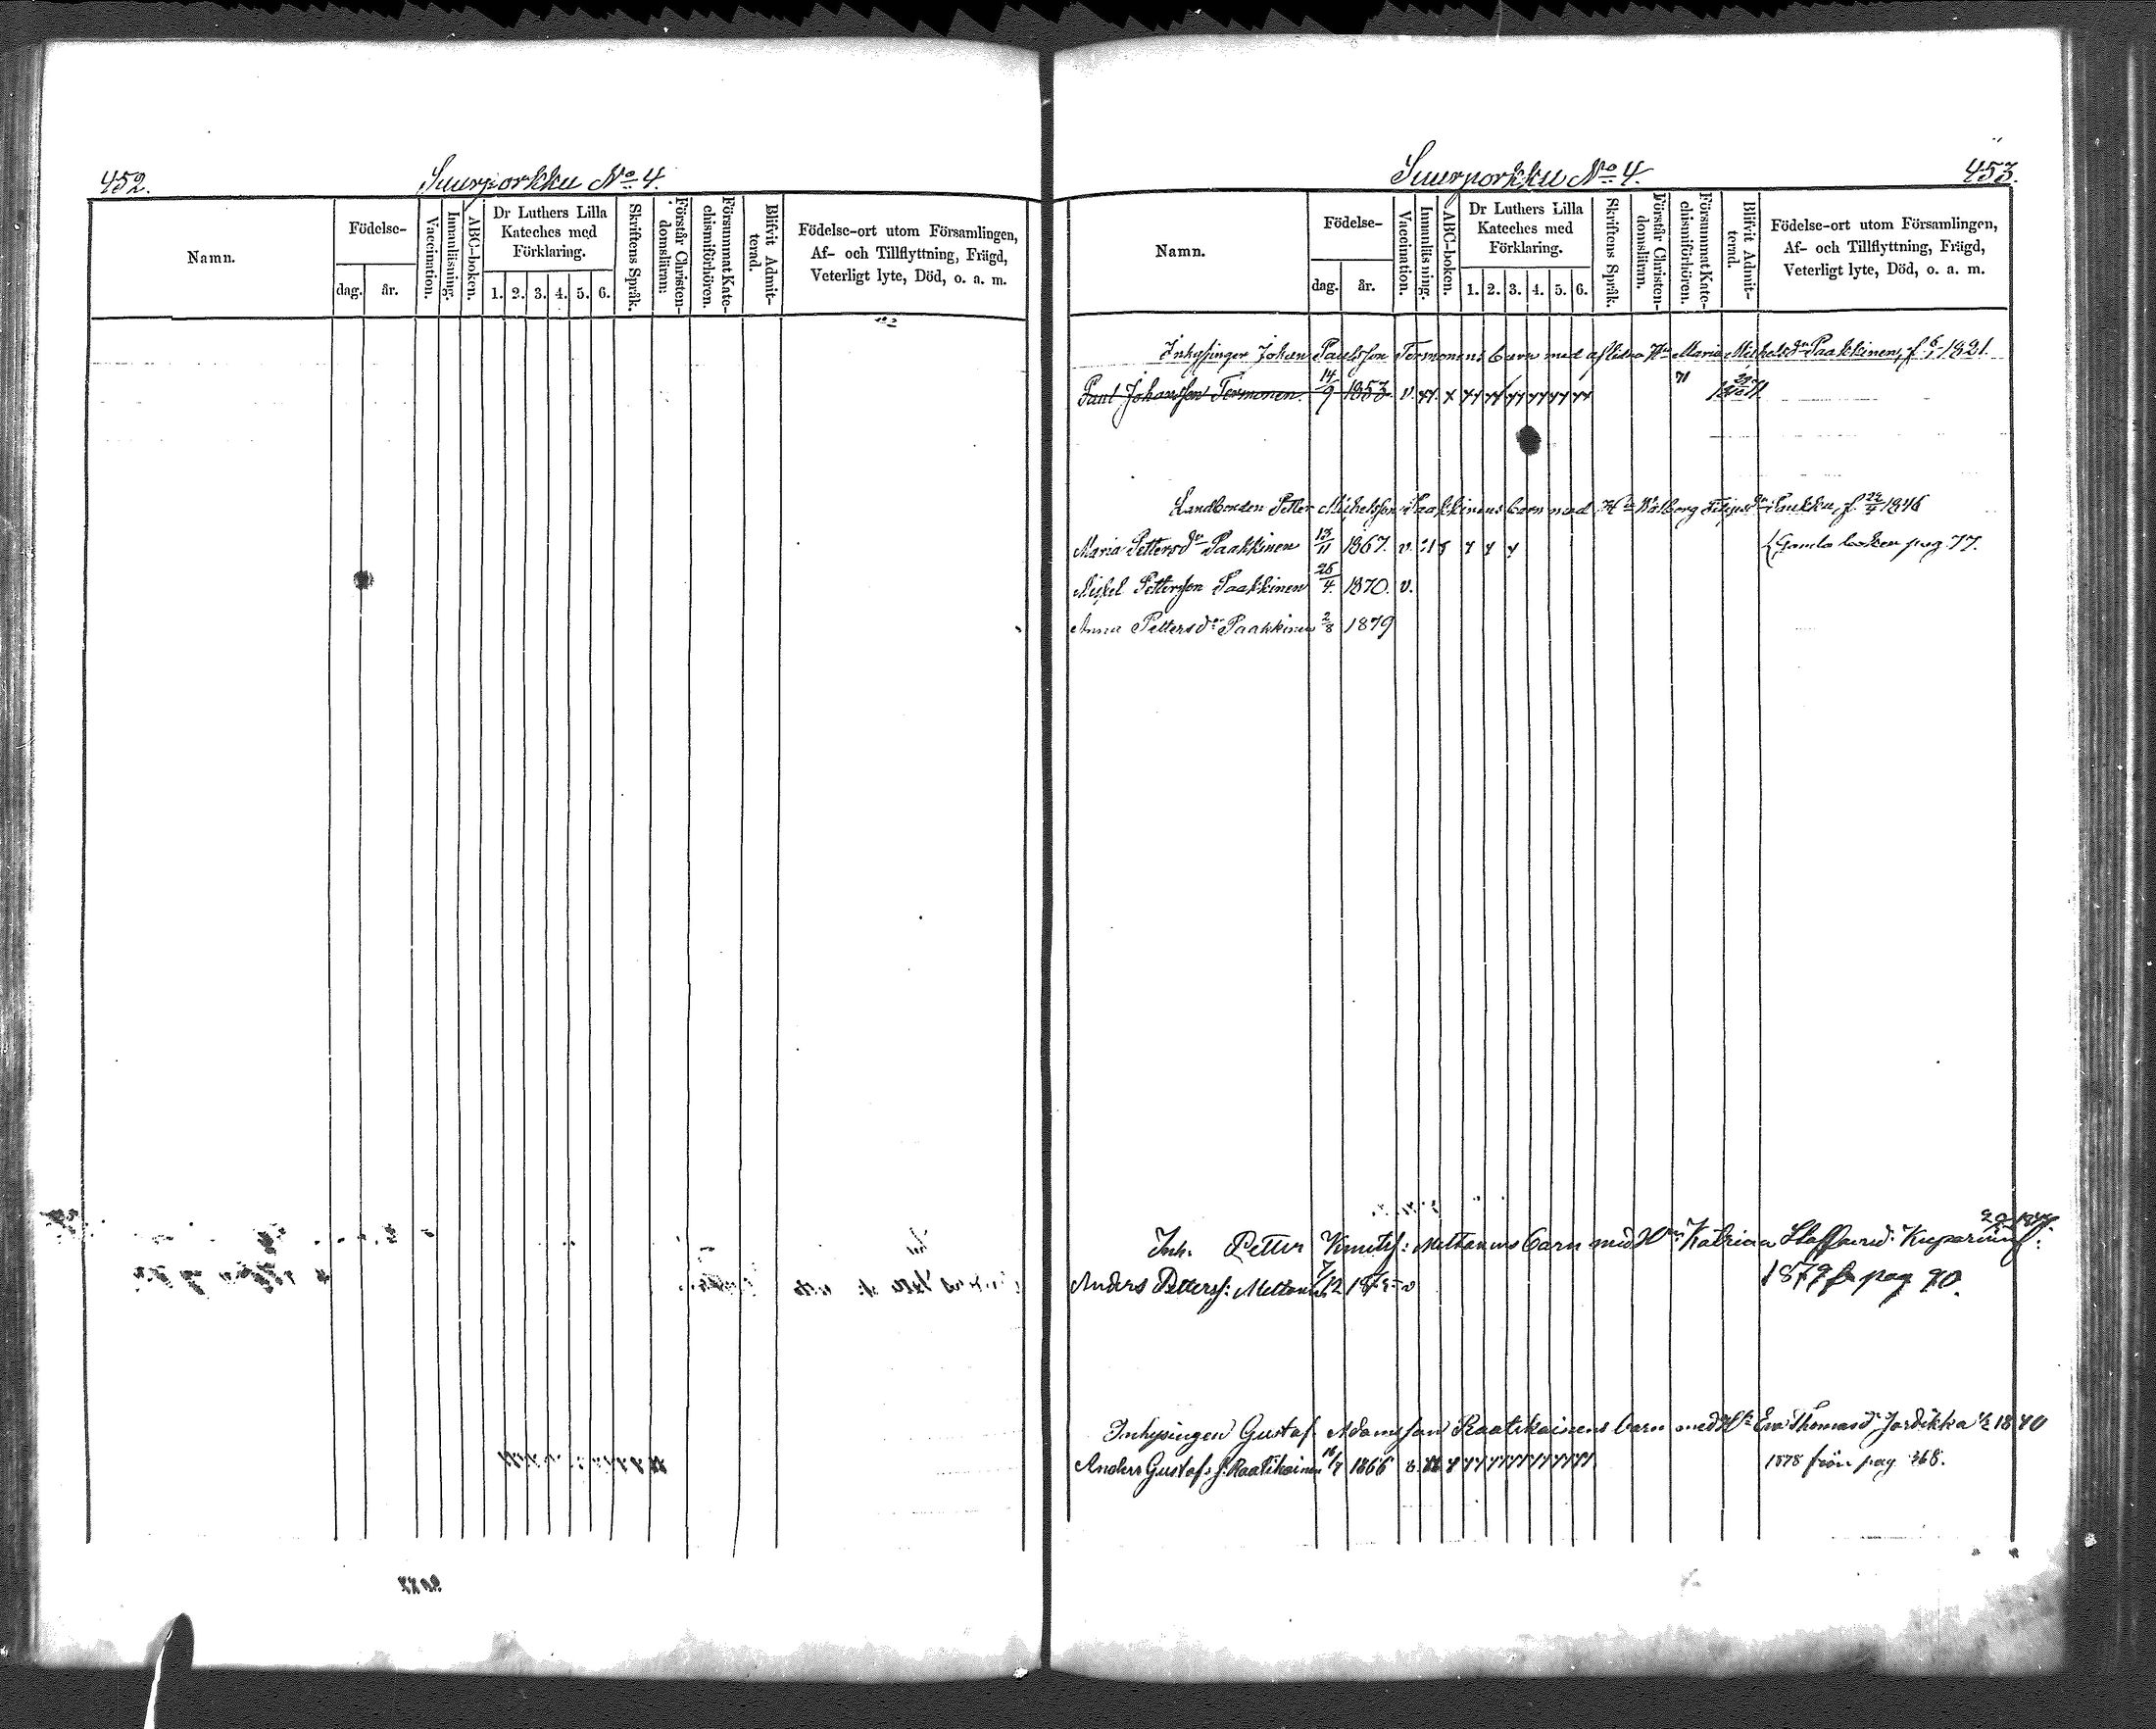 452. Suurporkku No 4.
Namn. Födelse- dag. år. Vaccination. Innanläsning. ABC-boken. Dr Luthers Lilla Kateches med Förklaring. 1. 2. 3. 4. 5. 6. Skriftens Språk. Förstår Christendomsläran: Försummat Katechismiförhören. Blifvit Admitterad. Födelse-ort utom Församlingen, Af- och Tillflyttning, Frägd, Veterligt lyte, Död, o. a. m.
Suurporkku No 4. 453.
Namn. Födelse- dag. år. Vaccination. Innanläsning. ABC-boken. Dr Luthers Lilla Kateches med Förklaring. 1. 2. 3. 4. 5. 6. Skriftens Språk. Förstår Christendomsläran. Försummat Katechismiförhören. Blifvit Admitterad. Födelse-ort utom Församlingen, Af- och Tillflyttning, Frägd, Veterligt lyte, Död, o. a. m.
Inhysingen Johan Paulsson Termonens barn med aflidna Hu Maria Michelsdr Paakkinen, f. 6/1 1821.
Paul Johansson Termonen. 14/9 1853. v. 71
Landbonden Petter Michelsson Paakkinens barn med Hu Walborg Filipsdr Puukka, f. 1846
Maria Pettersdr Paakkinen 13/11 1867. v. Gamla boken pag. 77.
Mickel Pettersson Paakkinen 25/4. 1870. v.
Anna Pettersdr Paakkinen 2/8 1879
Inh. Petter Knutss: Mettanens barn med Hu Katrina Staffansd: Kuparinen f:
Anders Petterss: Mettanen 7/12 v 1879 fr pag 90.
Inhysingen Gustaf Adamsson Raatikainens barn med Hu Eva Thomasdr Jordikka 1840
Anders Gustafss. Raatikainen 1866 v. 1878 från pag 368.